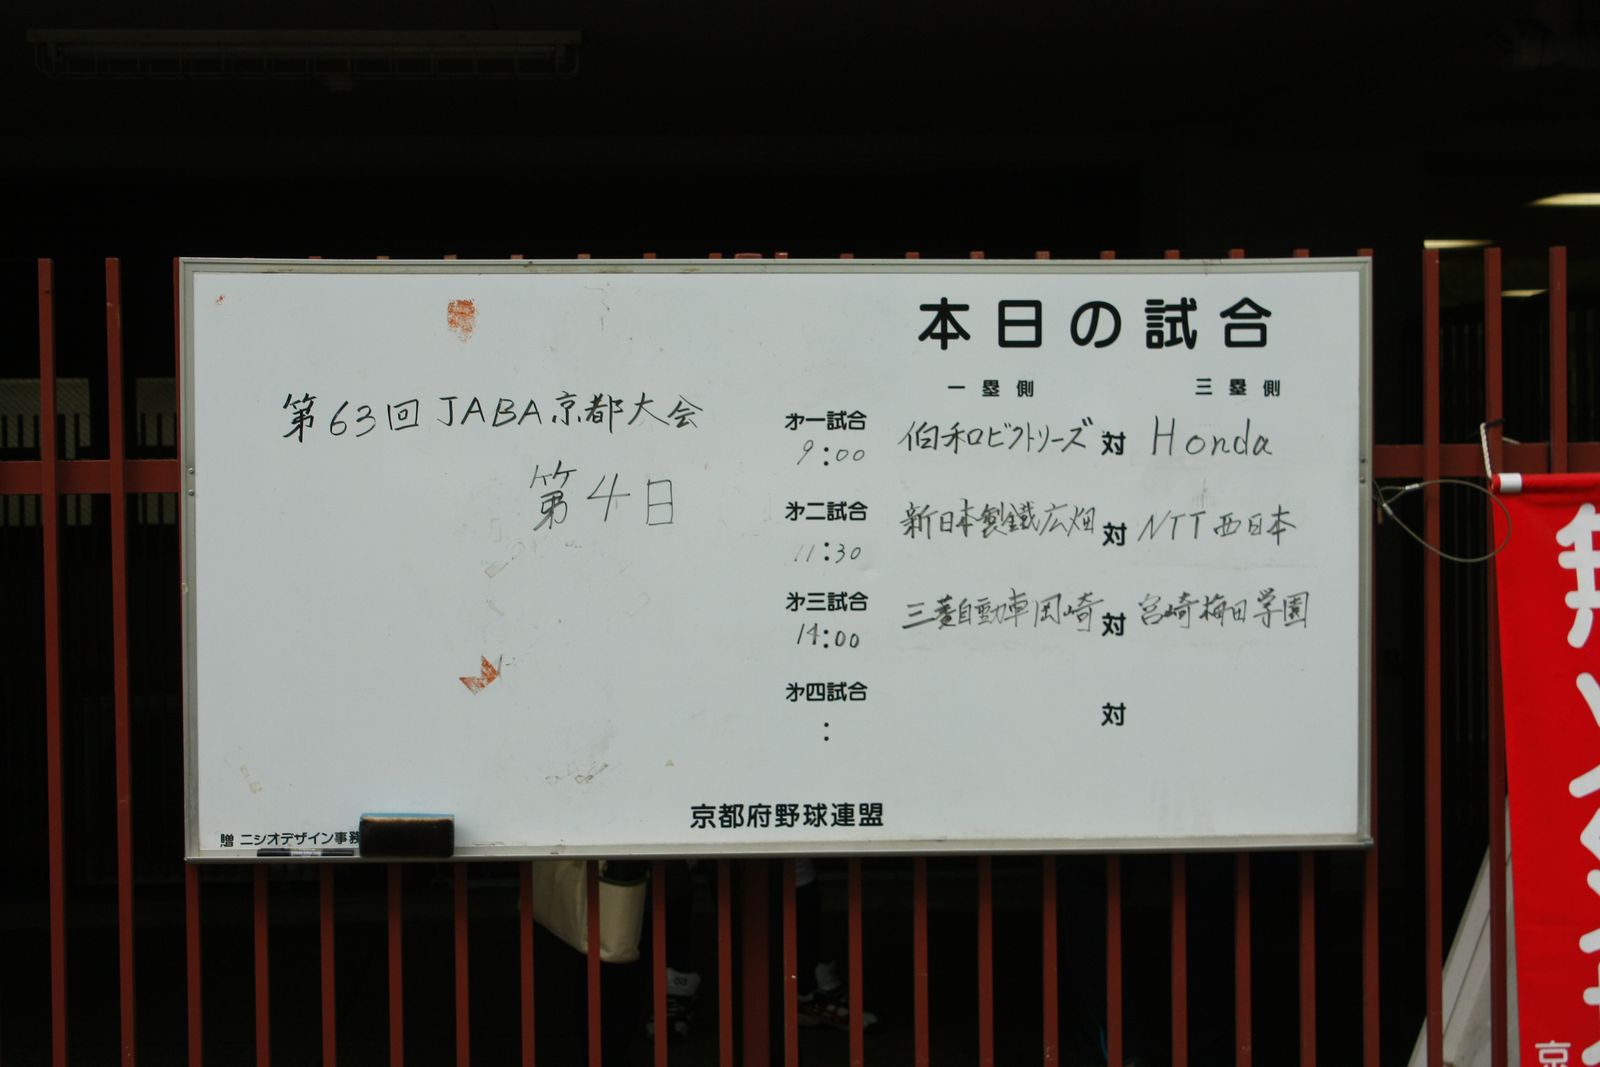 本日の試合
一塁側 三塁側
第63回JABA京都大会
第4日
第一試合 伯和ビクトリーズ 対 Honda
9:00
第二試合 新日本製鐵広畑 対 NTT西日本
11:30
第三試合 三菱自動車岡崎 対 宮崎梅田学園
14:00
第四試合 対
:
京都府野球連盟
贈 ニシオデザイン事務
京